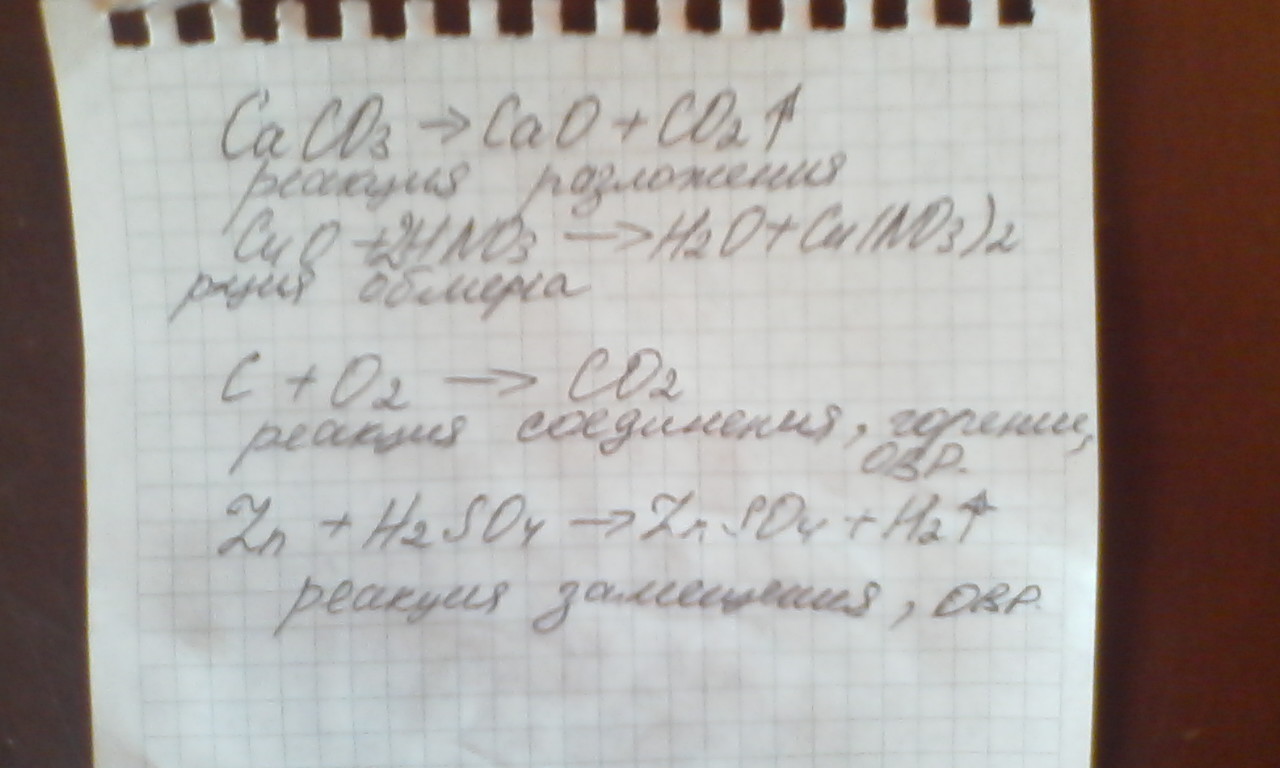 CaCO3 → CaO + CO2↑
реакция разложения
CuO + 2HNO3 → H2O + Cu(NO3)2
р-ция обмена
C + O2 → CO2
реакция соединения, горения,
ОВР.
Zn + H2SO4 → ZnSO4 + H2↑
реакция замещения, ОВР.